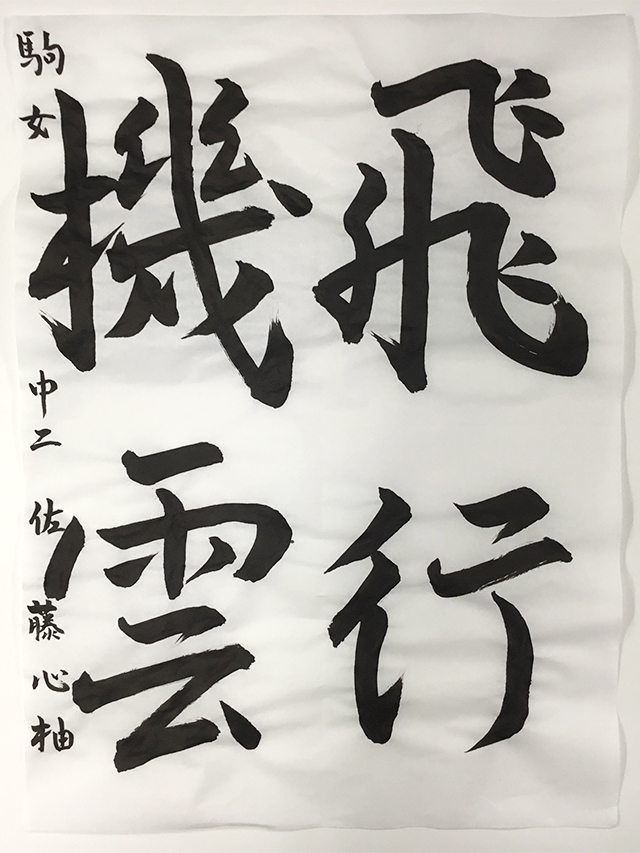 飛行
機雲
駒女 中二 佐藤心柚